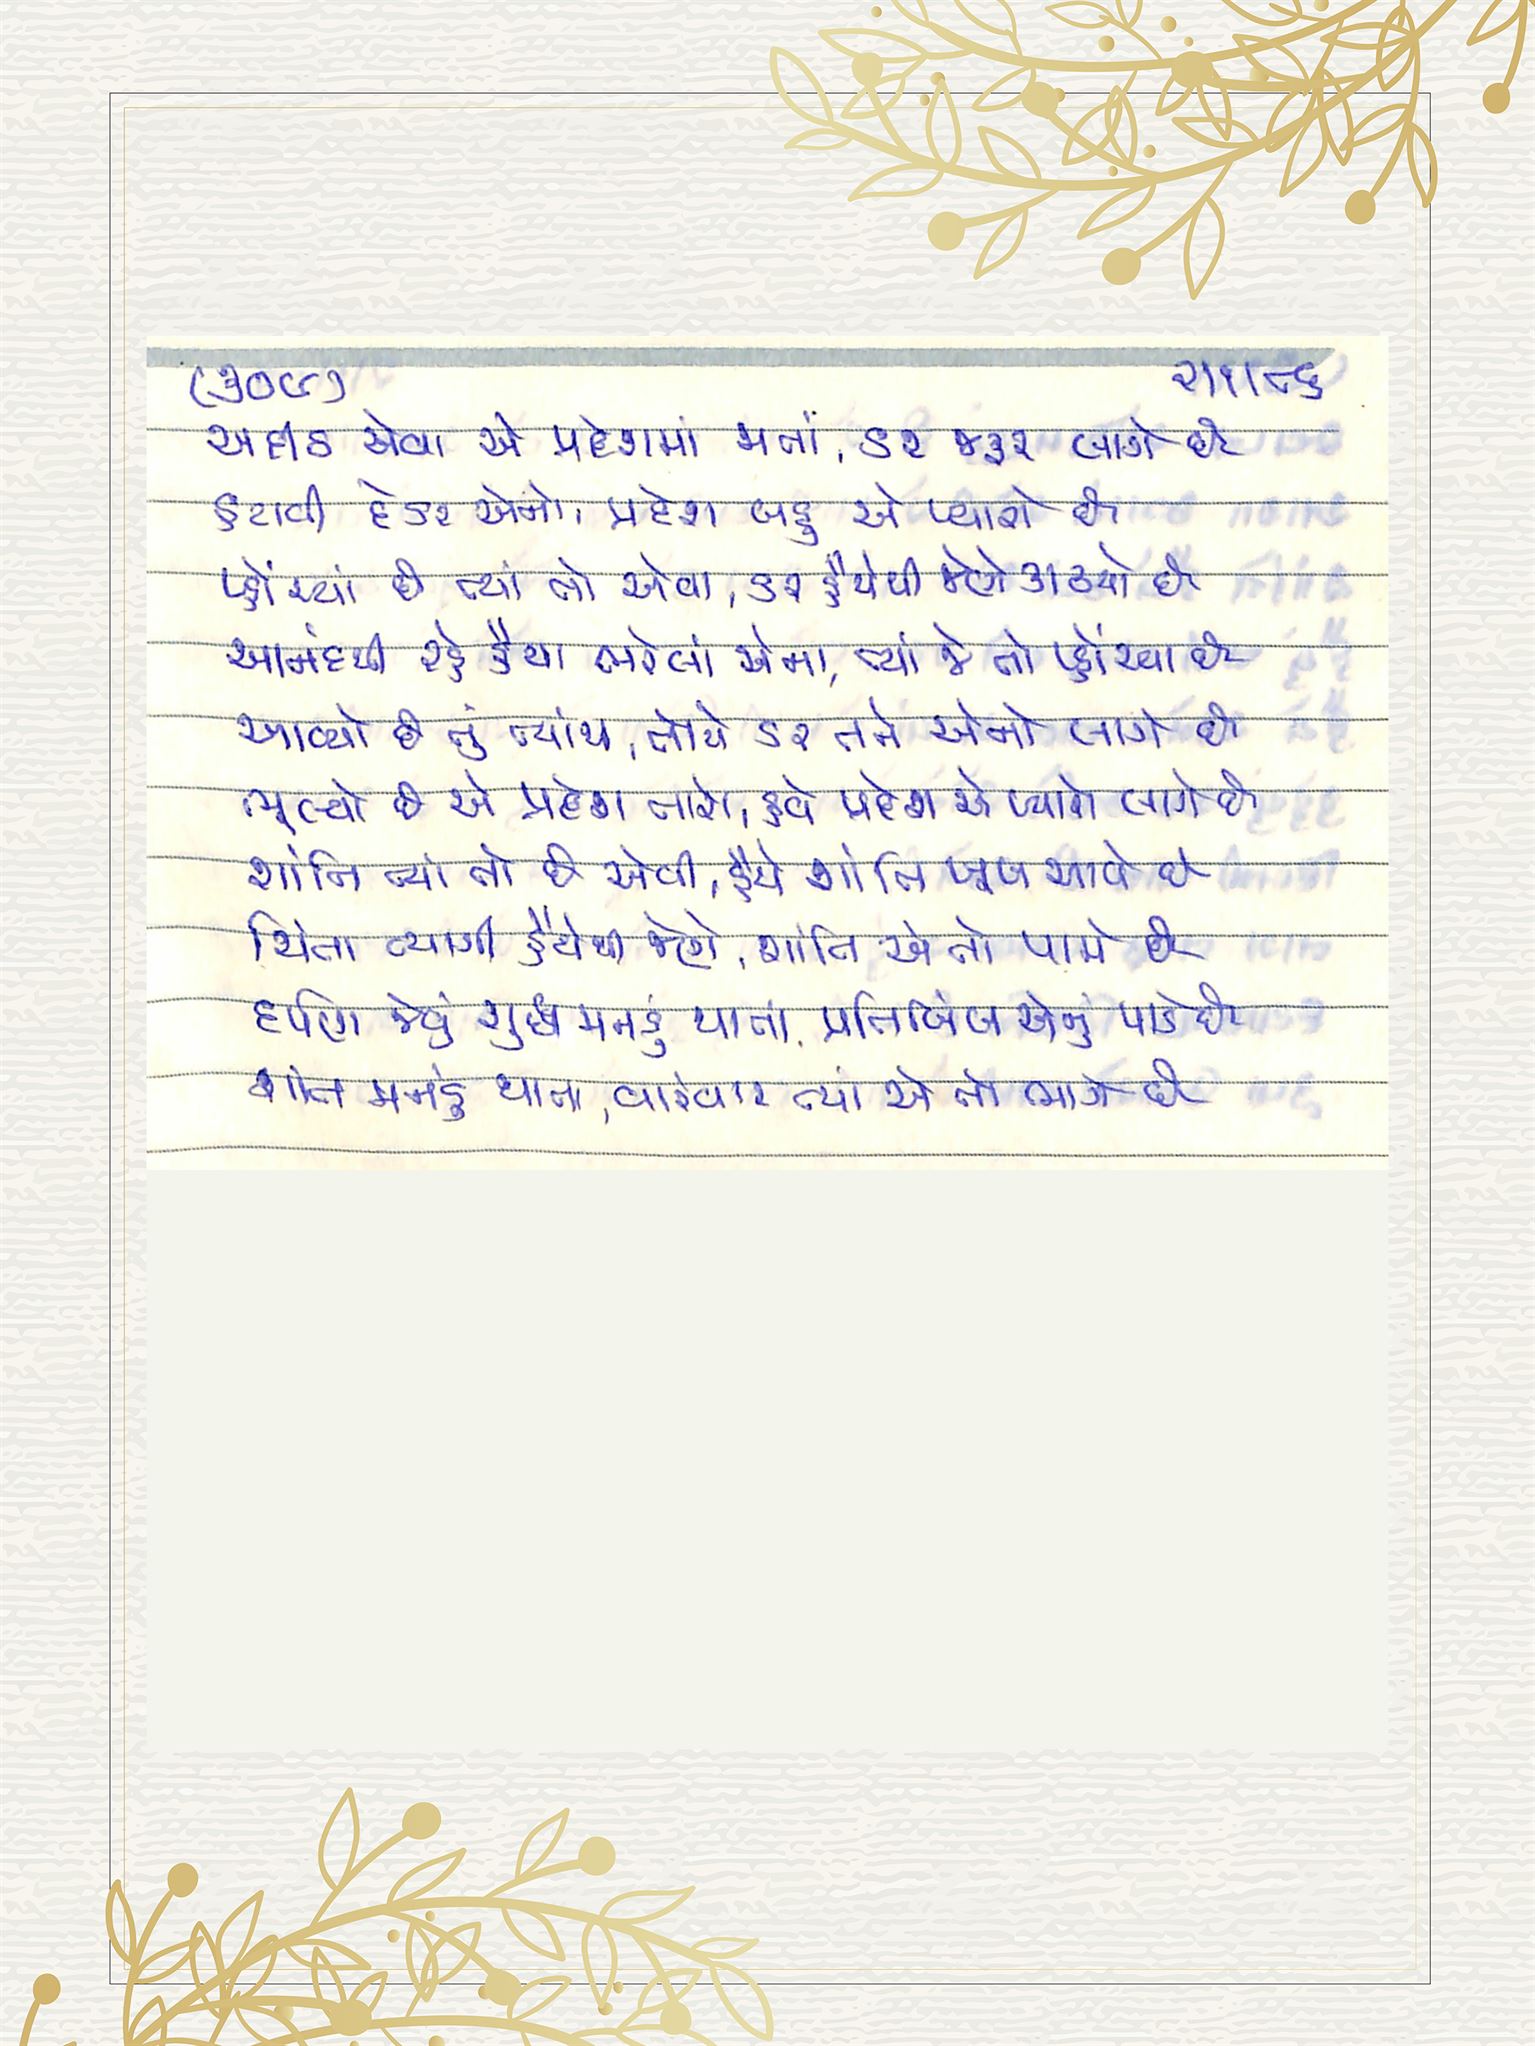 (૩૦૯) ૨।૧।૮૬
અદીઠ એવા એ પ્રદેશમાં જતાં, ડર જરૂર લાગે છે
હટાવી દે ડર એનો, પ્રદેશ બહુ એ પ્યારો છે
પ્હોંચ્યાં છે ત્યાં તો એવા, ડર હૈયેથી જેણે કાઢયો છે
આનંદથી રહે હૈયા ભરેલાં એના, ત્યાં જે તો પ્હોંચ્યા છે
આવ્યો છે તું ત્યાંથી, તોયે ડર તને એનો લાગે છે
ભૂલ્યો છે એ પ્રદેશ તારો, હવે પ્રદેશ એ પ્યારો લાગે છે
શાંતિ ત્યાં તો છે એવી, હૈયે શાંતિ ખૂબ આવે છે
ચિંતા ત્યાગી હૈયેથી જેણે, શાંતિ એ તો પામે છે
દર્પણ જેવું શુદ્ધ મનડું થાતાં, પ્રતિબિંબ એનું પાડે છે
શાંત મનડું થાતા, વારંવાર ત્યાં એ તો ભાગે છે